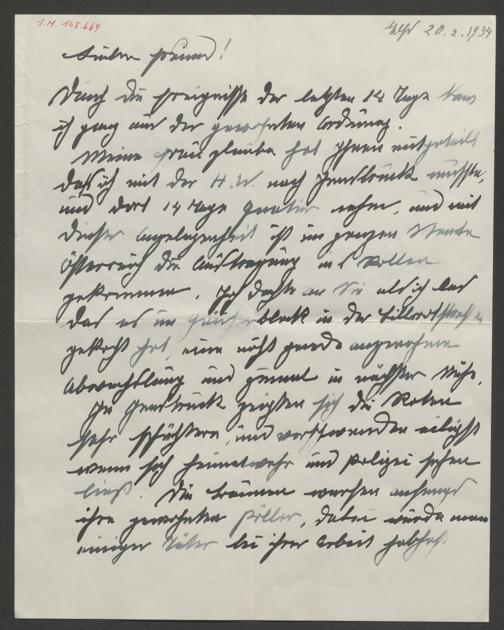 I.N. 145.669
20.2.1934
Lieber Freund!
Durch die Ereignisse der letzten 14 Tage kam
ich ganz aus der gewohnten Ordnung.
Meine Frau glaube hat Ihnen mitgeteilt
daß ich mit der H.W. nach Innsbruck mußte,
und dort 14 Tage Quartier nehmen, und mit
dieser Angelegenheit ist im ganzen
Österreich die Austragung ins Rollen
gekommen. Ich dachte an Sie als ich las
das es im Häuserblock in der Billrothstraße
gekracht hat, eine nicht gerade angenehme
Abwechslung und zumal in nächster Nähe.
In Innsbruck zeigten sich die Roten
sehr schüchtern, und verschwanden eiligst
wenn sich Heimatwehr und Polizei sehen
ließ. Die braunen warfen anfangs
ihre gewohnten Böller, dabei wurde man
einiger Täter bei ihrer Arbeit habhaft.